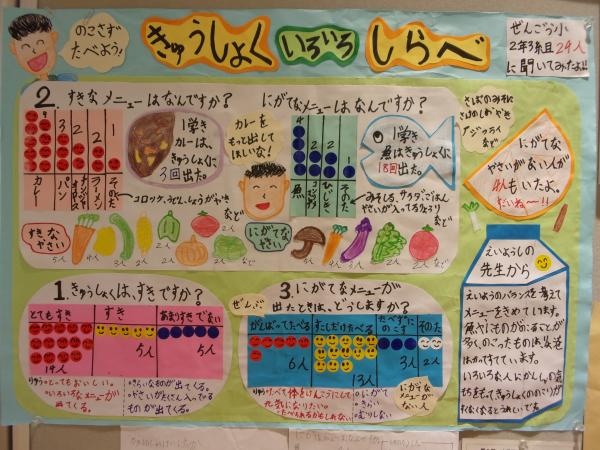 のこさず
たべよう!
きゅうしょく いろいろ しらべ
ぜんごう小
2年3組 24人
に聞いてみたよ!!
2. すきなメニューはなんですか?
9
3
2
2
1
カレー
パン
ラーメン
そのた
コロッケ、うどん、しょうがやき
など
1学き
カレーは、
きゅうしょくに
3回出た。
カレーを
もっと出して
ほしいな!
にがてなメニューは、なんですか?
4
2
2
1
魚
ひじき
そのた
みそしる、サラダ、ごはん
やさいが入ってるたまごやき
など
1学き
魚はきゅうしょくに
18回出た。
さばのみそに
さけのしおやき
アジフライ
など
にがてな
やさいがない人が
4人もいたよ。
すごいね〜!!
すきな
やさい
5人 4人 3人 2人 2人 2人 2人
など
にがてな
やさい
5人 4人 4人 2人 2人
など
1. きゅうしょくは、すきですか?
とてもすき
すき
あまりすきでない
14人
5人
5人
りゆう ・とってもおいしい。
・いろいろなメニューが
出てくる。
・きらいなものが出てくる。
・やさいがたくさん入ってる
ものが出てくる。
ぜんぶ
3. にがてなメニューが
出たときは、どうしますか?
がんばってたべる
すこしだけたべる
たべずに
のこす
そのた
6人
13人
3人
2人
りゆう
・たべて体をけんこうにして
元気になりたい。
・たべれるかもしれない
・にがて
・きらい
・むりしない
にがてな
メニューが
ない人
えいようしの
先生から
えいようのバランスを考えて
メニューをきめています。